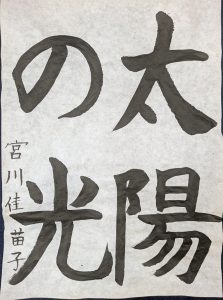 太陽
の光
宮川佳苗子